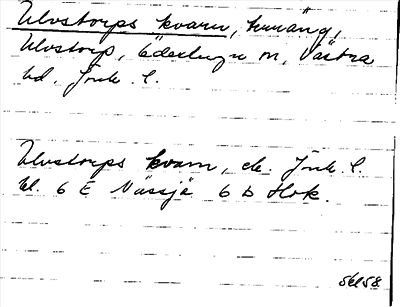 Ulvstorps kvarn, kvnäng,
Ulvstorp, Ödestugu sn, Västra
hd. Jönk. l.
Ulvstorps kvarn, ek. Jönk. l.
bl. 6 E Nässjö 6 D Hok.
Skl 58